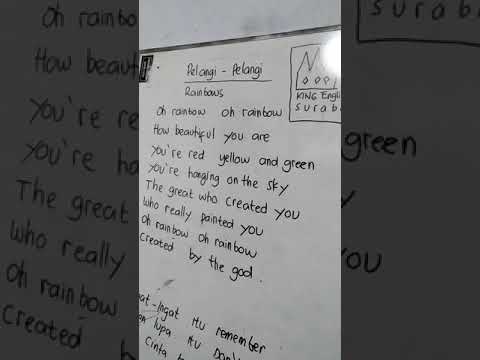 Pelangi - Pelangi
Rainbows
oh rainbow oh rainbow
How beautiful you are
you're red yellow and green
you're hanging on the sky
The great who created you
who really painted you
oh rainbow oh rainbow
created by the god.
-Ingat itu remember
lupa itu Don't
cinta
KING Engli
Surab